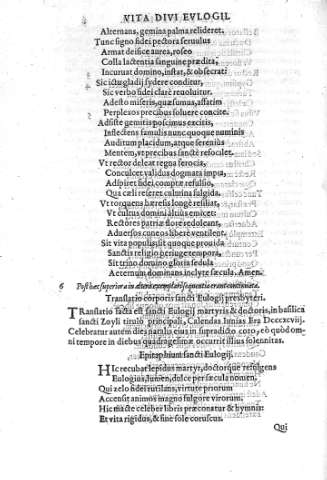 VITA DIVI EVLOGII.
Alternans, gemina palma relideret.
Tunc signo fidei pectora seruulus
Armat deifice aurea, roseo
Colla lactentia sanguine prædita,
Incuruat domino, instat, & obsecrat:
Sic ictu gladij sydere conditur,
Sic verbo fidei clarè reuoluitur.
Adesto miseris, quæsumus, affatim
Perplexos precibus soluere concite.
Adsiste gemitis poscimus excitis,
Inflectens famulis nunc quoque numinis
Auditum placidum, atque serenius
Mentem, vt precibus sanctè refocilet.
Vt rector deleat regna ferocia,
Conculcet validus dogmata impia,
Adspiret fidei comptæ refulsio,
Qua cæli referet culmina fulgida.
Vt torquens hæresis longè resiliat,
Vt cultus domini altius emicet:
Rectores patriæ flore redoleans,
Aduersos cuneos liberè ventilent.
Sit vita populis sit quoque prouida
Sanctis religio heriuge tempora,
Sit trino domino gloria sedula
Aeternum dominans inclyte sæcula. Amen.
6 Post hæc superiora in altero exemplari sequentia erant continuata.
Translatio corporis sancti Eulogij presbyteri.
Translatio facta est sancti Eulogij martyris & doctoris, in basilica
sancti Zoyli tituli principali, Calendas Iunias Era Dccccxcviij.
Celebratur autem dies natalis eius in supradicto toto, eò quòd om-
ni tempore in diebus quadragesimæ occurrit illius solennitas.
Epitaphium sancti Eulogij.
Hic recubat lepidus martyr, doctorque refulgens
Eulogius, lumen, dulce per sæcula nomen.
Qui zelo fidei rutilans, virtute priorum
Accensit animos magno fulgore virorum.
Hic macte celeber libris præconatur & hymnis:
Et vita rigidus, & sine sole coruscus.
Qui